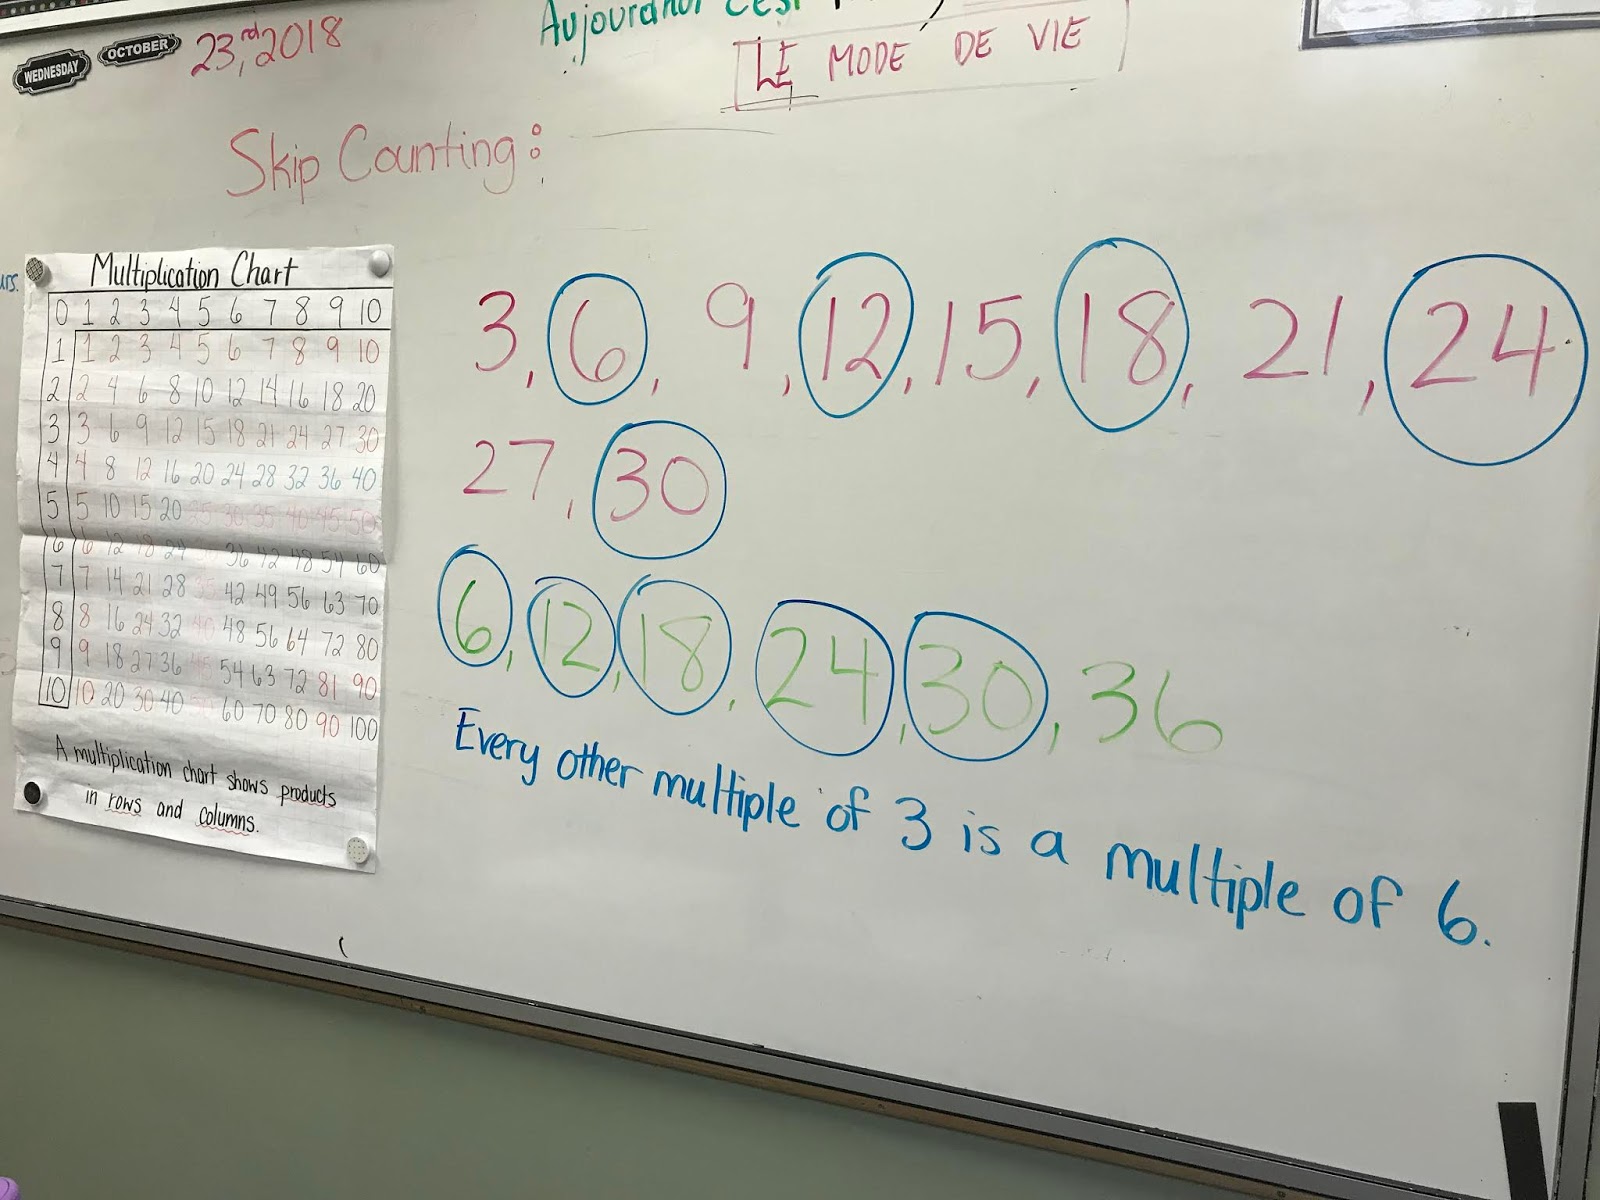 Aujourd'hui c'est
WEDNESDAY OCTOBER 23rd, 2018
LE MODE DE VIE
Skip Counting:
urs.
Multiplication Chart
0 1 2 3 4 5 6 7 8 9 10
1 1 2 3 4 5 6 7 8 9 10
2 2 4 6 8 10 12 14 16 18 20
3 3 6 9 12 15 18 21 24 27 30
4 4 8 12 16 20 24 28 32 36 40
5 5 10 15 20 25 30 35 40 45 50
6 6 12 18 24 36 42 48 54 60
7 7 14 21 28 35 42 49 56 63 70
8 8 16 24 32 40 48 56 64 72 80
9 9 18 27 36 45 54 63 72 81 90
10 10 20 30 40 50 60 70 80 90 100
A multiplication chart shows products
in rows and columns.
3, 6, 9, 12, 15, 18, 21, 24
27, 30
6, 12, 18, 24, 30, 36
Every other multiple of 3 is a multiple of 6.